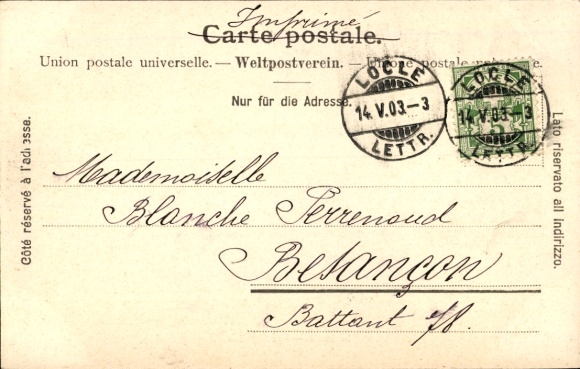 Imprimé
Carte postale.
Union postale universelle. — Weltpostverein. — Unione postale
Nur für die Adresse.
LOCLE
14.V.03.–3
LETTR.
LOCLE
14.V.03.–3
LETTR.
5
Côté réservé à l'adresse.
Lato riservato all indirizzo.
Mademoiselle
Blanche Perrenoud
Besançon
Battant